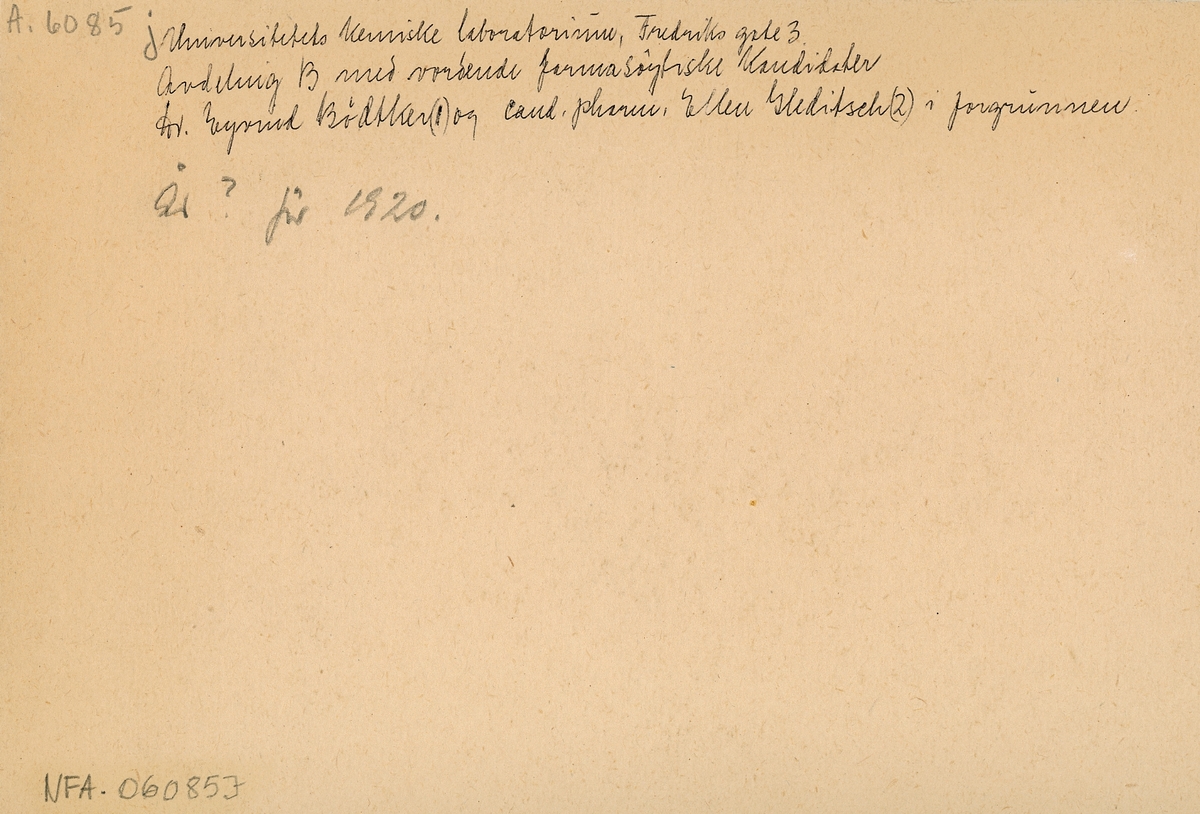 A. 6085 j
Universitetets kemiske laboratorium, Fredriks gate 3.
Avdeling B med vordende farmasöytiske Kandidater
Dr. Eyvind Bödtker (1) og cand. pharm. Ellen Gleditsch (2) i forgrunnen.
År ? för 1920.
NFA. 06085J